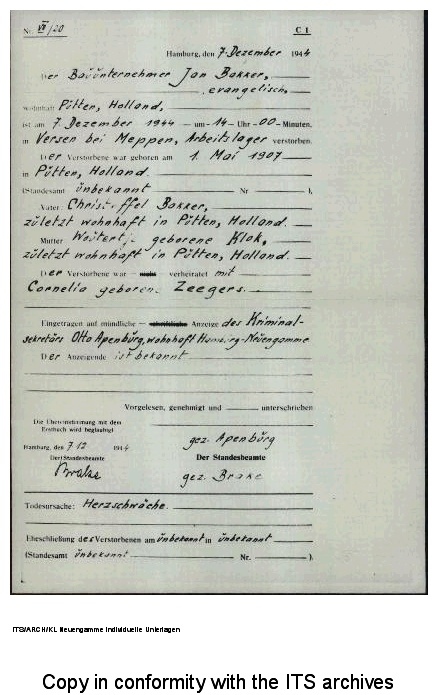 Nr. VI/20 C 1
Hamburg, den 7. Dezember 1944
Der Bauunternehmer Jan Bakker,
evangelisch,
wohnhaft Pütten, Holland,
ist am 7. Dezember 1944 um 14 Uhr 00 Minuten
in Versen bei Meppen, Arbeitslager verstorben.
Der Verstorbene war geboren am 1. Mai 1907
in Pütten, Holland.
(Standesamt ünbekannt Nr ).
Vater: Christoffel Bakker,
zületzt wohnhaft in Pütten, Holland.
Mutter geborene Klok,
zületzt wohnhaft in Pütten, Holland.
Der Verstorbene war – nicht – verheiratet mit
Cornelia geboren. Zeegers.
Eingetragen auf mündliche – schriftliche Anzeige des Kriminal-
sekretärs Otto Apenbürg, wohnhaft Hamburg-Neuengamme
Der Anzeigende ist bekannt
Vorgelesen, genehmigt und unterschrieben
Die Übereinstimmung mit dem
Erstbuch wird beglaubigt
gez. Apenbürg
Hamburg, den 7.12 1944
Der Standesbeamte
Der Standesbeamte
Brake
gez. Brake
Todesursache: Herzschwäche.
Eheschließung des Verstorbenen am ünbekannt in ünbekannt
(Standesamt ünbekannt Nr. ).
ITS/ARCH/KL Neuengamme Individuelle Unterlagen
Copy in conformity with the ITS archives